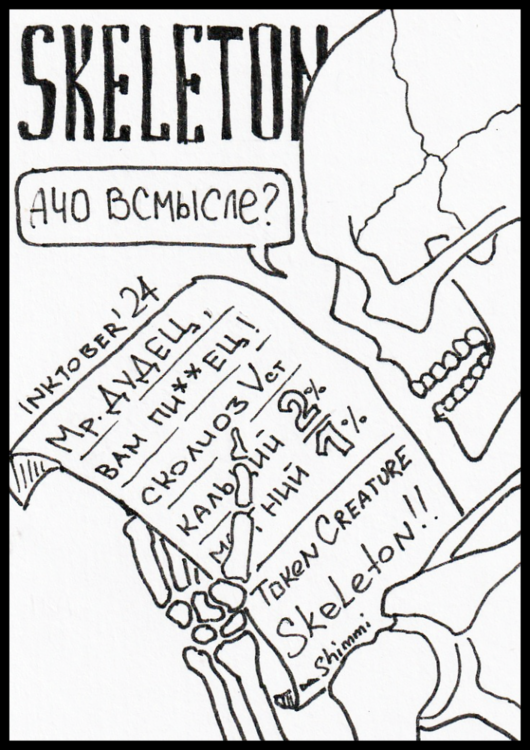 SKELETON
АЧО ВСМЫСЛЕ?
INKTOBER'24
Мр. ДУДЕЦ,
ВАМ ПИ**ЕЦ!
СКОЛИОЗ Vст
КАЛЬ ИЙ 2%
М НИЙ 1%
TOKEN CREATURE
SKELETON!!
Shimmi